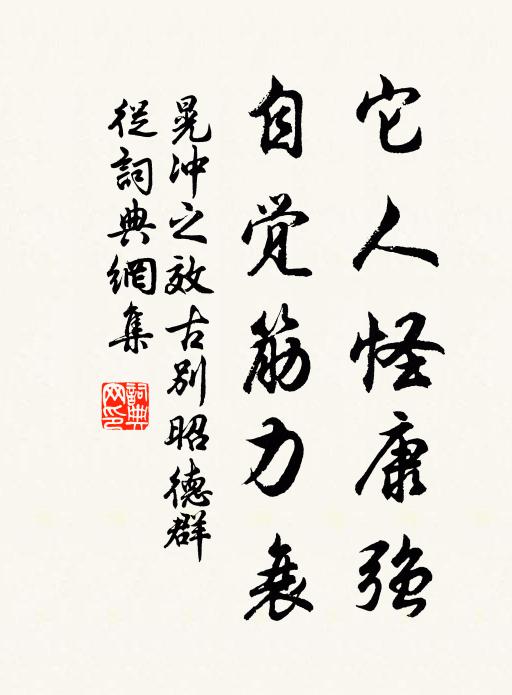 它人怪康强
自觉筋力衰
晃冲之效古别昭德群
從詞典網集
詞典网印